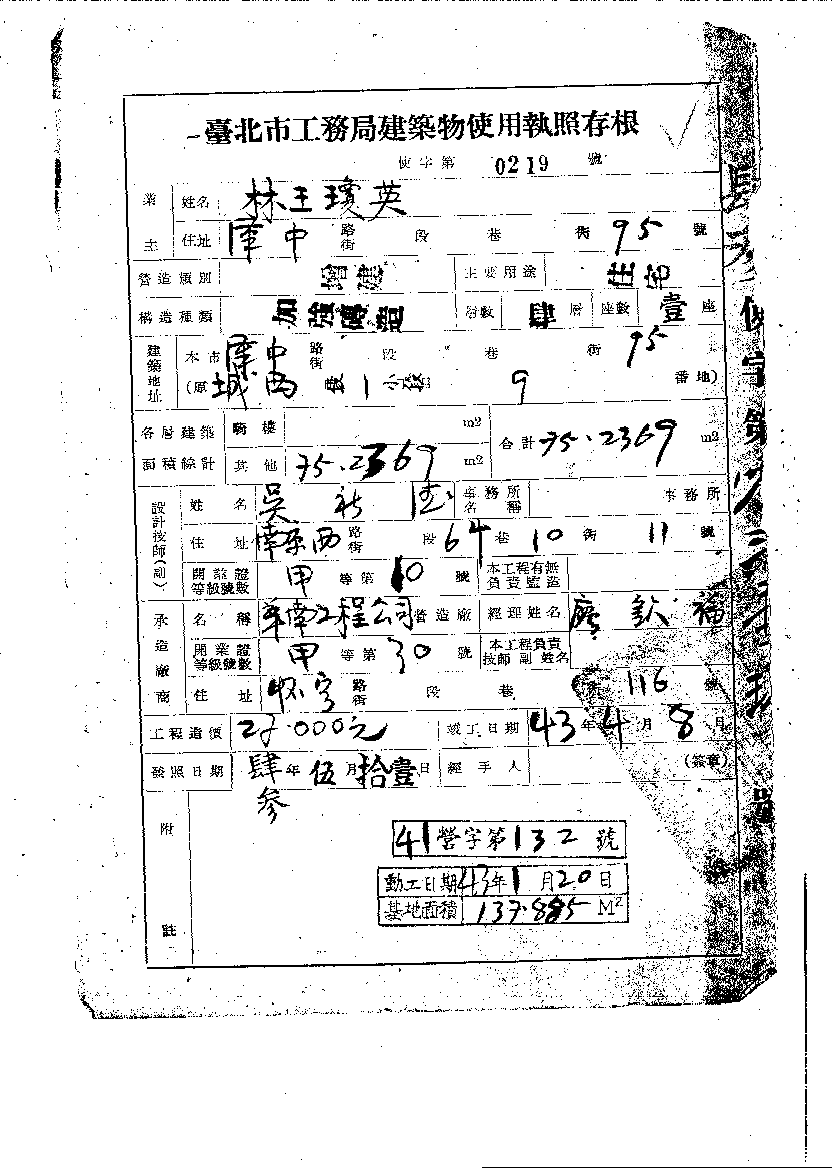 臺北市工務局建築物使用執照存根
使字第 0219 號
業主 姓名 林王瓊英
住址 中 路街 段 巷 街 95 號
營造類別 增建 主要用途 住宅
構造種類 加強磚造 層數 肆層 座數 壹座
建築地址 本市 中 路街 段 巷 街 95
(原 城西 段 1 小段 9 番地)
各層建築面積總計 騎樓 m2 合計 75.2369 m2
其他 75.2369 m2
設計技師(副) 姓名 吳 事務所名稱 事務所
住址 西 路街 段 64 巷 10 街 11 號
開業證等級號數 甲 等第 10 號 本工程有無負責監造
承造廠商 名稱 華南工程公司 營造廠 經理姓名 廖欽福
開業證等級號數 甲 等第 30 號 本工程負責技師副姓名
住址 怀宁 路街 段 巷 116 號
工程造價 000元 竣工日期 43年4月8日
發照日期 肆參年伍月拾壹日 經手人 (簽章)
附註
41營字第132號
動工日期 43年1月20日
基地面積 137.885 M²
使字第